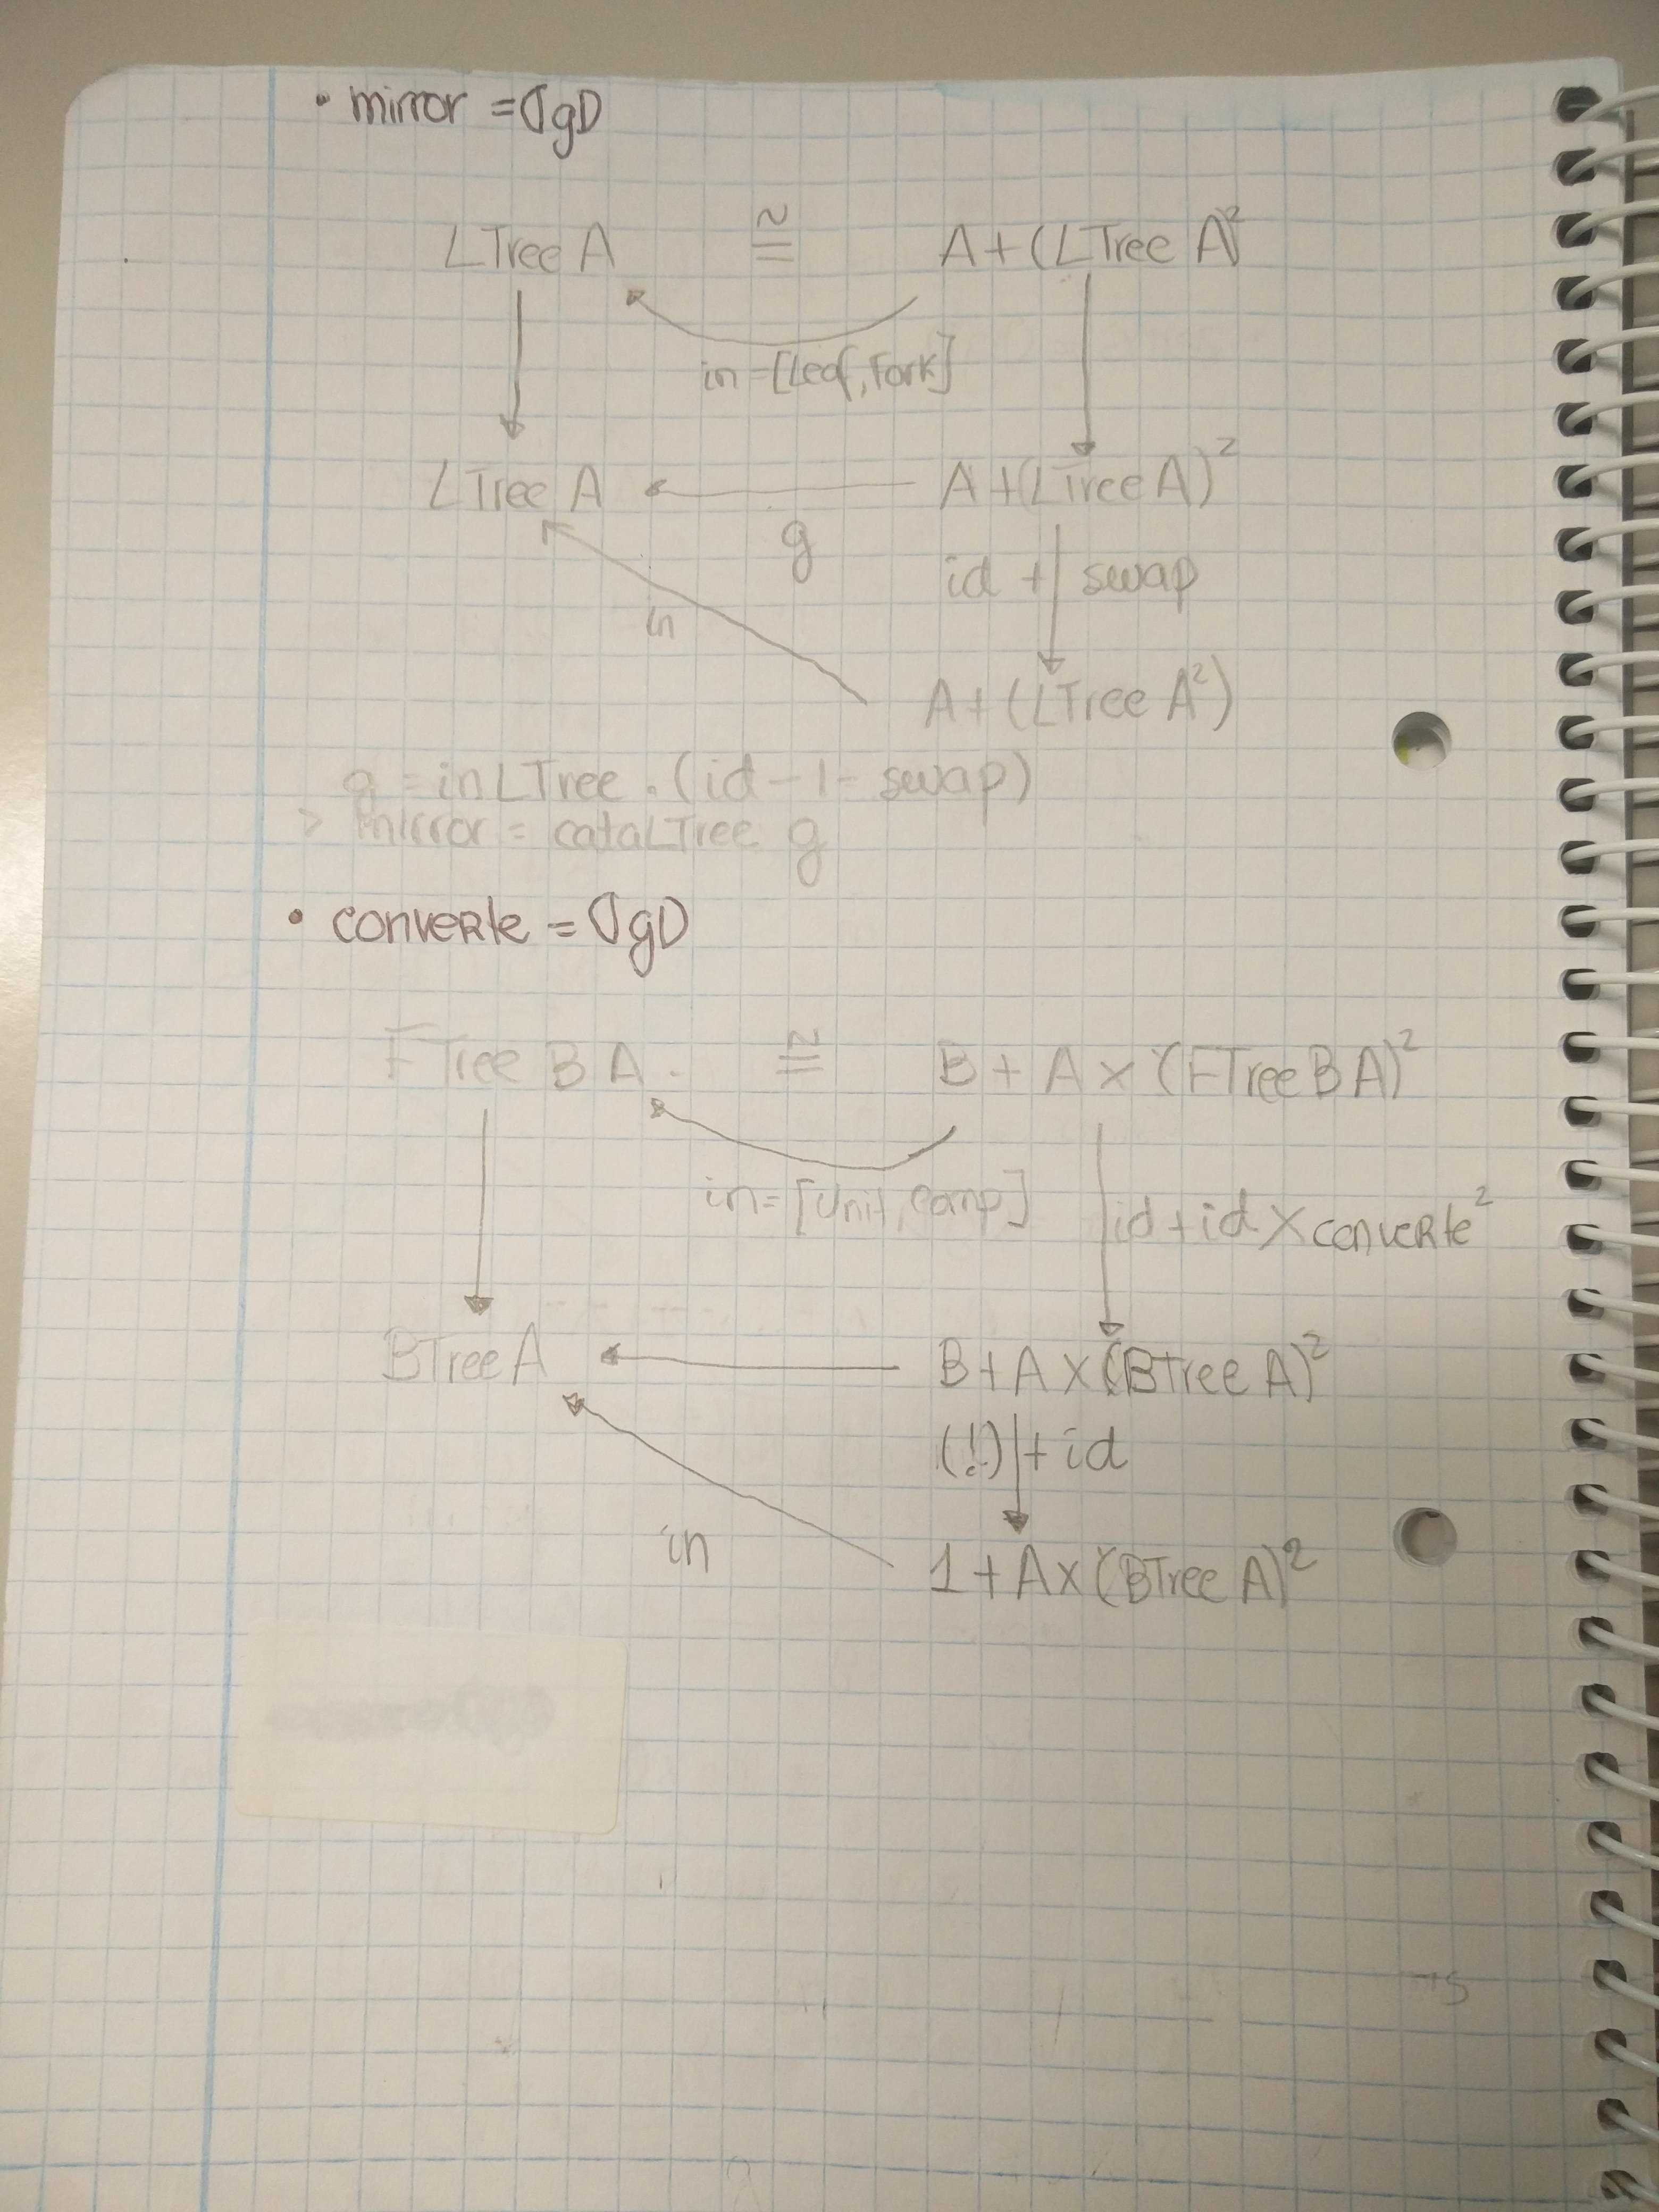 • mirror = ⦇g⦈
LTree A ≅ A + (LTree A)²
in = [Leaf, Fork]
LTree A A + (LTree A)²
g
id + swap
in
A + (LTree A²)
g = inLTree . (id -|- swap)
> mirror = cataLTree g
• converte = ⦇g⦈
FTree B A. ≅ B + A × (FTree B A)²
in = [Unit, Comp] id + id × converte²
BTree A B + A × (BTree A)²
(!) + id
in
1 + A × (BTree A)²